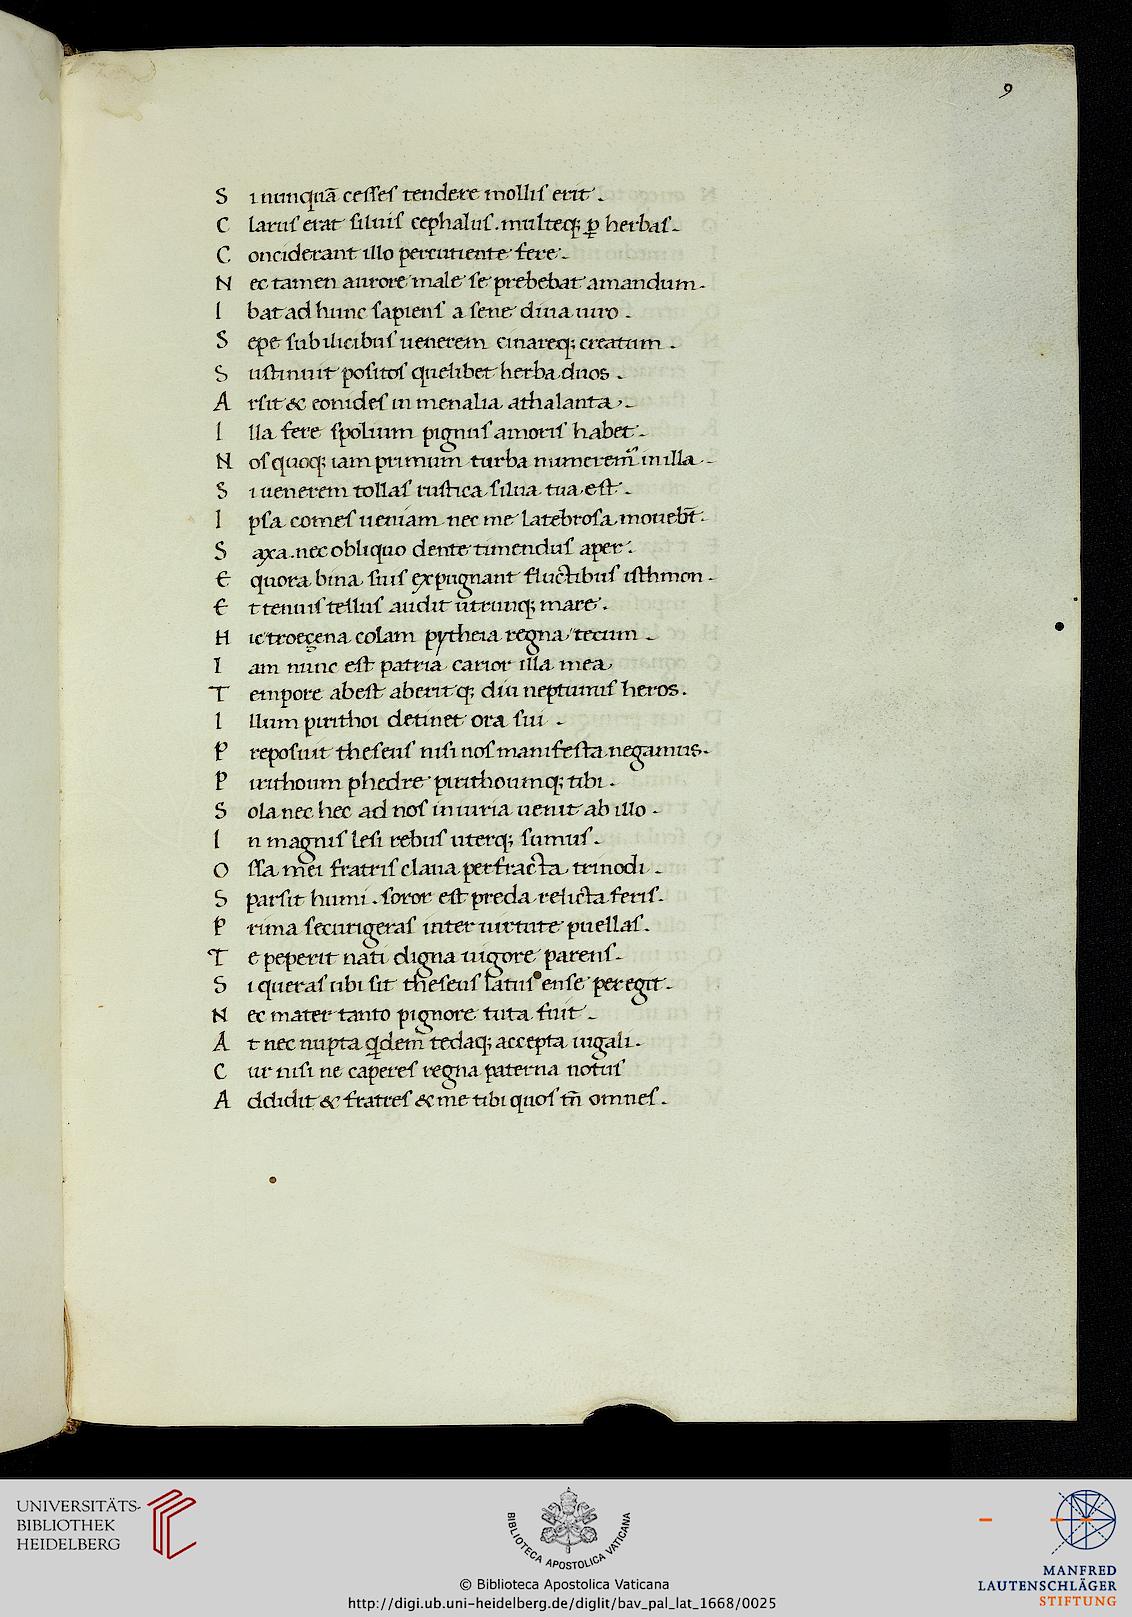 9
S i nunquā cesses tendere mollis erit .
C larus erat siluis cephalus . multeq; ꝑ herbas .
C onciderant illo percutiente fere .
N ec tamen aurore male se prebebat amandum .
I bat ad hunc sapiens a sene diua uiro .
S epe sub ilicibus uenerem cinareq; creatum .
S ustinuit positos quelibet herba duos .
A rsit & eonides in menalia athalanta .
I lla fere spolium pignus amoris habet .
N os quoq; iam primum turba numerem̄ in illa .
S i uenerem tollas rustica silua tua est .
I psa comes ueniam nec me latebrosa moueb̄t .
S axa . nec obliquo dente timendus aper .
E quora bina suis expugnant fluctibus isthmon .
E t tenuis tellus audit utrunq; mare .
H ic troeçena colam pytheia regna tecum .
I am nunc est patria carior illa mea
T empore abest aberitq; diu neptunus heros .
I llum pirithoi detinet ora sui .
P reposuit theseus nisi nos manifesta negamus .
P irithoum phedre pirithoumq; tibi .
S ola nec hec ad nos iniuria uenit ab illo .
I n magnis lesi rebus uterq; sumus .
O ssa mei fratris claua perfracta trinodi .
S parsit humi . soror est preda relicta feris .
P rima securigeras inter uirtute puellas .
T e peperit nati digna uigore parens .
S i queras ubi sit theseus latus ense peregit .
N ec mater tanto pignore tuta fuit .
A t nec nupta qͥdem tedaq; accepta iugali .
C ur nisi ne caperes regna paterna notus
A ddidit & fratres & me tibi quos tn̄ omnes .
UNIVERSITÄTS-
BIBLIOTHEK
HEIDELBERG
BIBLIOTECA APOSTOLICA VATICANA
MANFRED
LAUTENSCHLÄGER
STIFTUNG
© Biblioteca Apostolica Vaticana
http://digi.ub.uni-heidelberg.de/diglit/bav_pal_lat_1668/0025